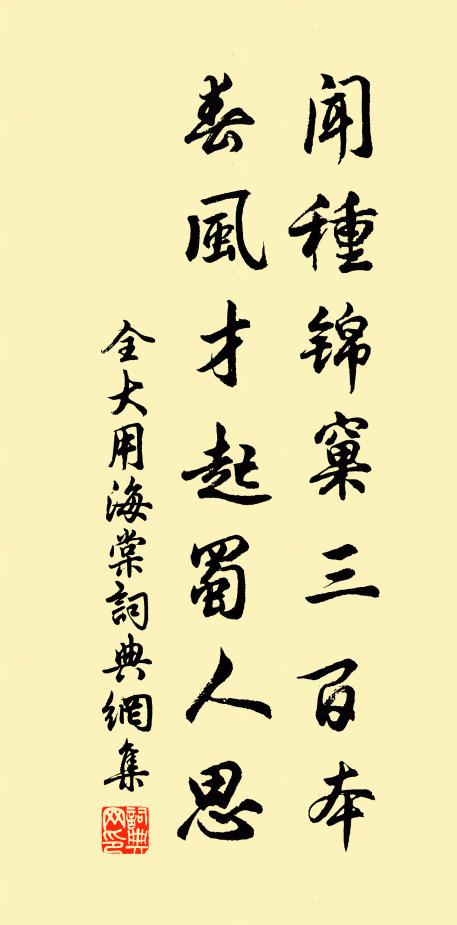 闻種锦窠三百本
春風才起蜀人思
全大用海棠詞典網集
詞典網印